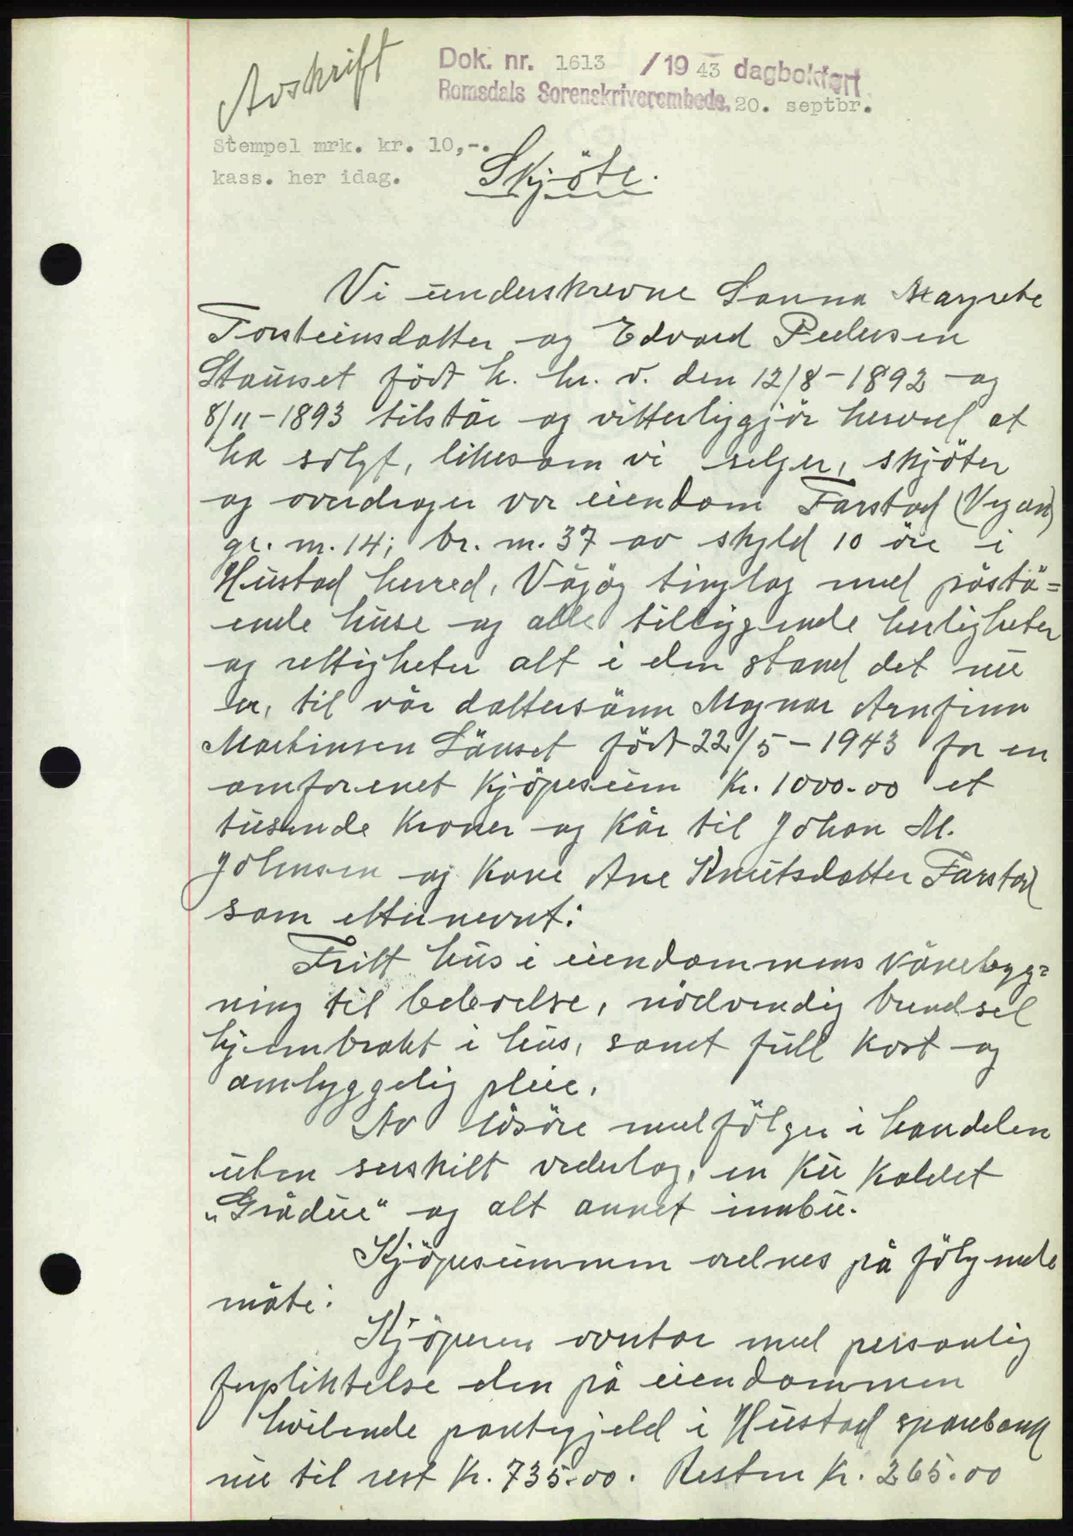 Avskrift
Dok. nr. 1613 /1943 dagbokført
Romsdals Sorenskriverembede. 20. septbr.
Stempel mrk. kr. 10,-.
kass. her idag.
Skjöte.
Vi underskrevne Sanna Margrete
Torsteinsdatter og Edvard Pedersen
Stavset född h. hv. v. den 12/8-1892 og
8/11-1893 tilstår og vitterliggjör herved at
ha solgt, likesom vi selger, skjöter
og overdrager vor eiendom Farstad
gr. nr. 14; br. nr. 37 av skyld 10 öre i
Hustad herred, Vågöy tinglag med påstå=
ende huse og alle tilliggende herligheter
og rettigheter alt i den stand det nu
er, til vår dattersönn Magnar Arnfinn
Martinsen födt 22/5-1943 for en
omforenet kjöpesum kr. 1000.00 et
tusende kroner og kår til Johan M.
Johnsen og kone Ane Knutsdatter Farstad
som etternevnt:
Fritt hus i eiendommens vånebyg=
ning til beboelse, nödvendig brendsel
hjembrakt i hus, samt full kost og
omhyggelig pleie.
Av lösöre medfölger i handelen
uten serskilt vederlag, en ku kaldet
og alt annet innbu.
Kjöpesummen ordnes på fölgende
måte:
Kjöperen overtar med personlig
forpliktelse den på eiendommen
hvilende pantegjeld i Hustad sparebank
nu til rest kr. 735.00. Resten kr. 265.00